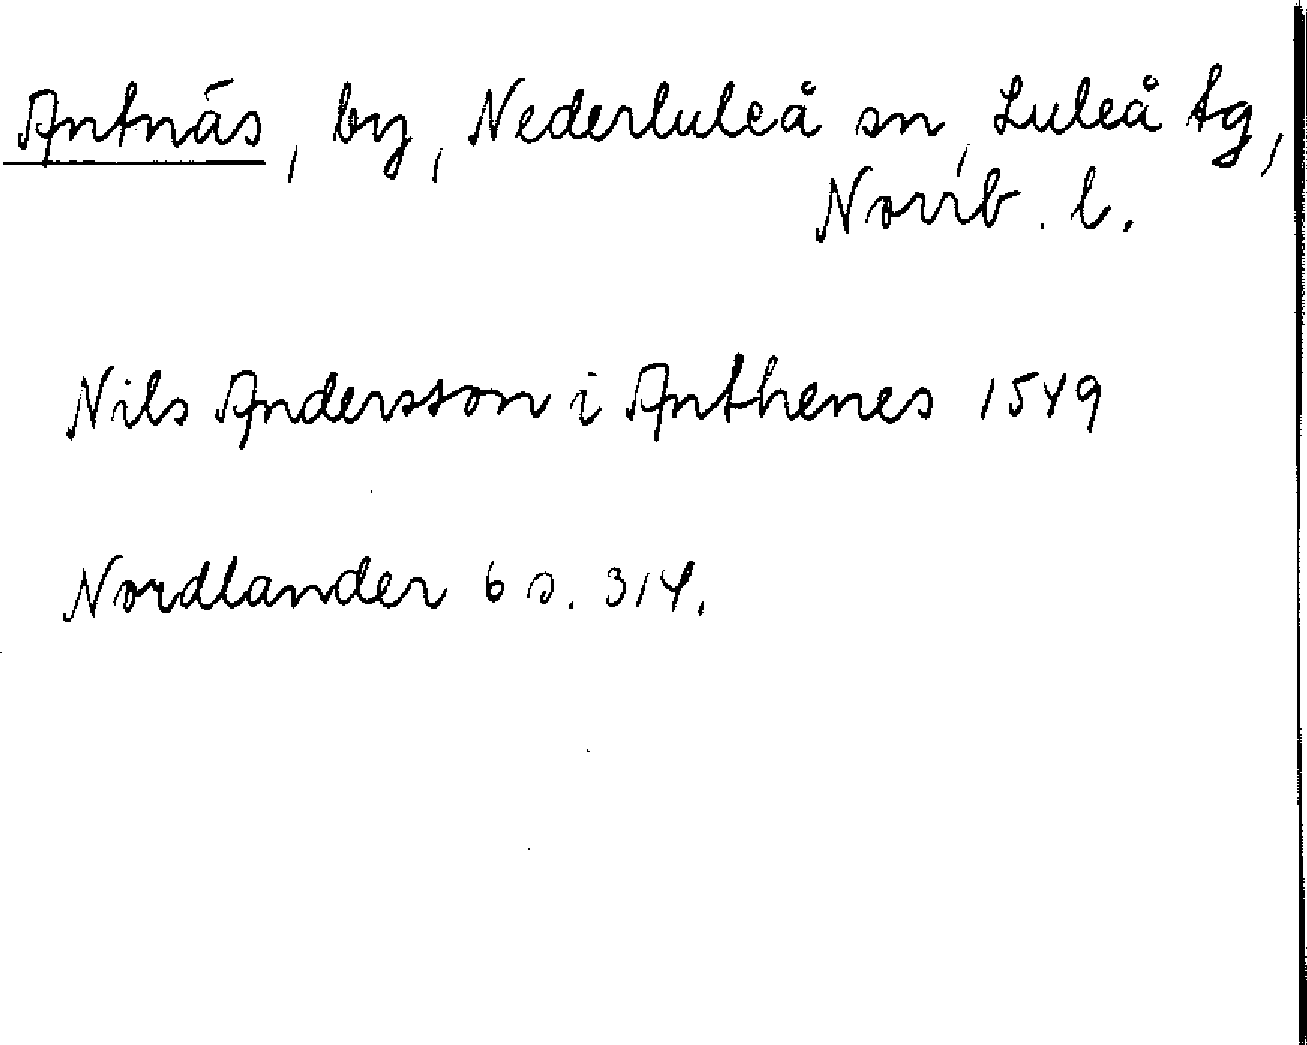 Antnäs, by, Nederluleå sn, Luleå tg,
Norrb. l.
Nils Andersson i Anthenes 1549
Nordlander 6 s. 314.